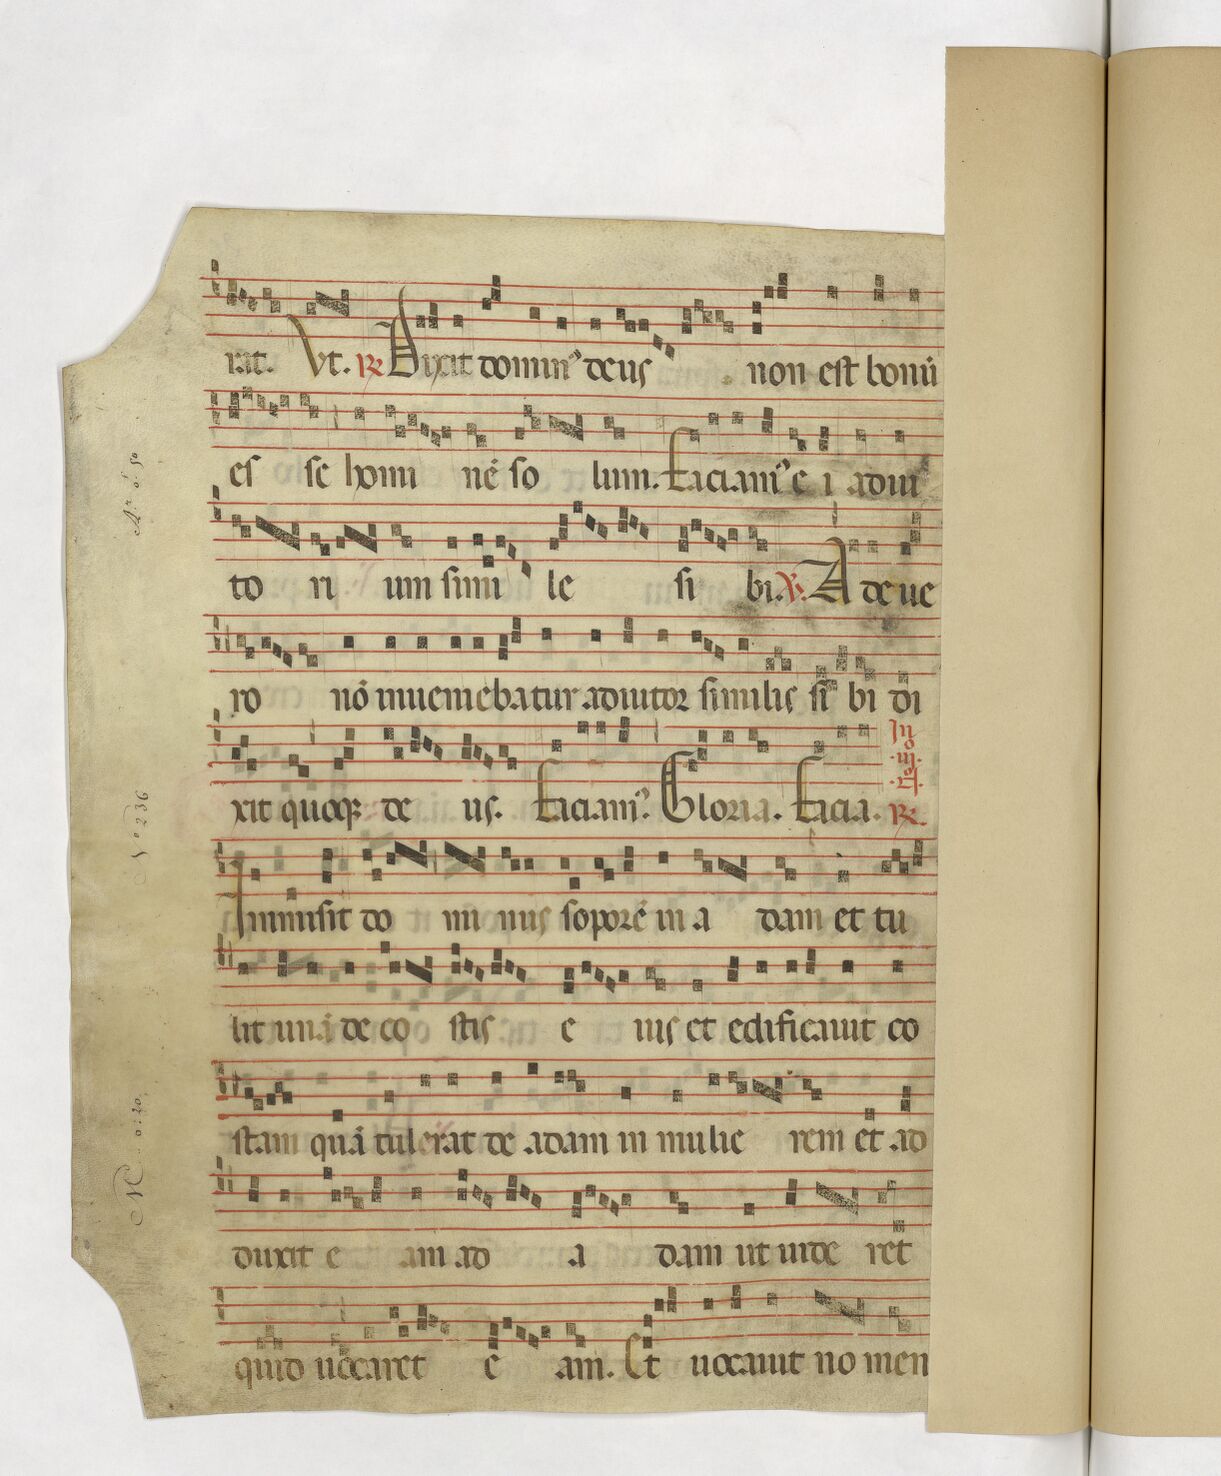 rit. Vt. ℟ Dixit domin⁹ deus non est bonū
es se homi nē so lum. Faciam⁹ e i adiu
to ri um simi le si bi. ℣. Ade ue
ro nō inueniebatur adiutor similis si bi di
xit quoqꝫ de us. Faciam⁹. Gloria. Facia. ℟.
Inmisit do mi nus soporē in a dam et tu
lit unā de co stis e ius et edificauit co
stam quā tulerat de adam in mulie rem et ad
duxit e am ad a dam ut uide ret
quid uocaret e am. Et uocauit no men
Nº 236